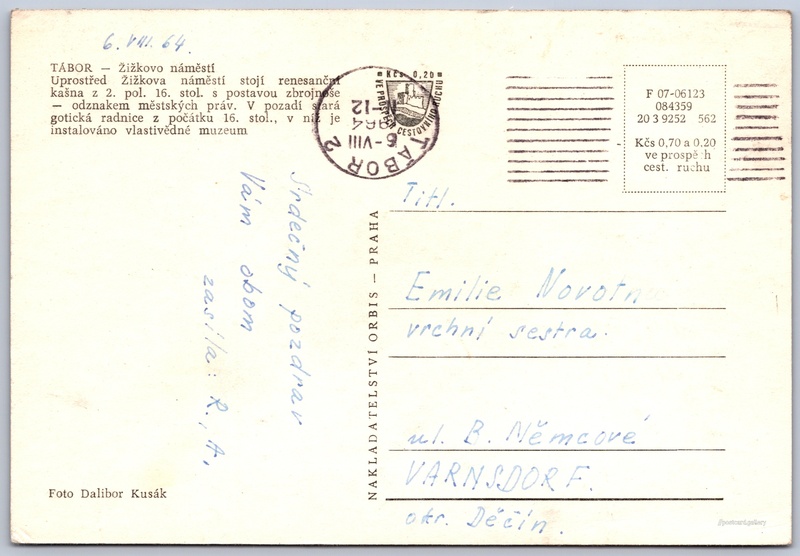 6. VIII. 64.
TÁBOR — Žižkovo náměstí
Uprostřed Žižkova náměstí stojí renesanční
kašna z 2. pol. 16. stol. s postavou zbrojnoše
— odznakem městských práv. V pozadí stará
gotická radnice z počátku 16. stol., v níž je
instalováno vlastivědné muzeum
Kčs 0,20
VE PROSPĚCH CESTOVNÍHO RUCHU
-12
6-VIII
964
TÁBOR 2
F 07-06123
084359
20 3 9252 562
Kčs 0,70 a 0.20
ve prospěch
cest. ruchu
Srdečný pozdrav
Vám oběm
zasílá: R. A.
NAKLADATELSTVÍ ORBIS — PRAHA
Titl.
Emilie Novotn
vrchní sestra.
ul. B. Němcové
VARNSDORF.
okr. Děčín.
Foto Dalibor Kusák